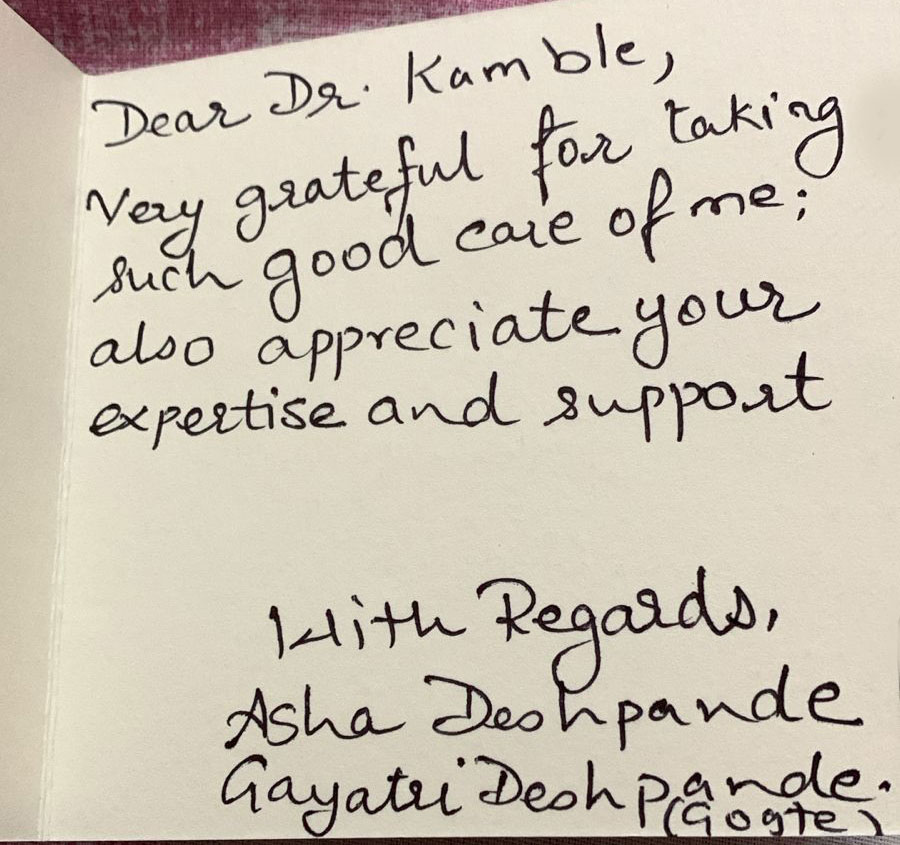 Dear Dr. Kamble,
Very grateful for taking
such good care of me;
also appreciate your
expertise and support
With Regards,
Asha Deshpande
Gayatri Deshpande.
(Gogte)